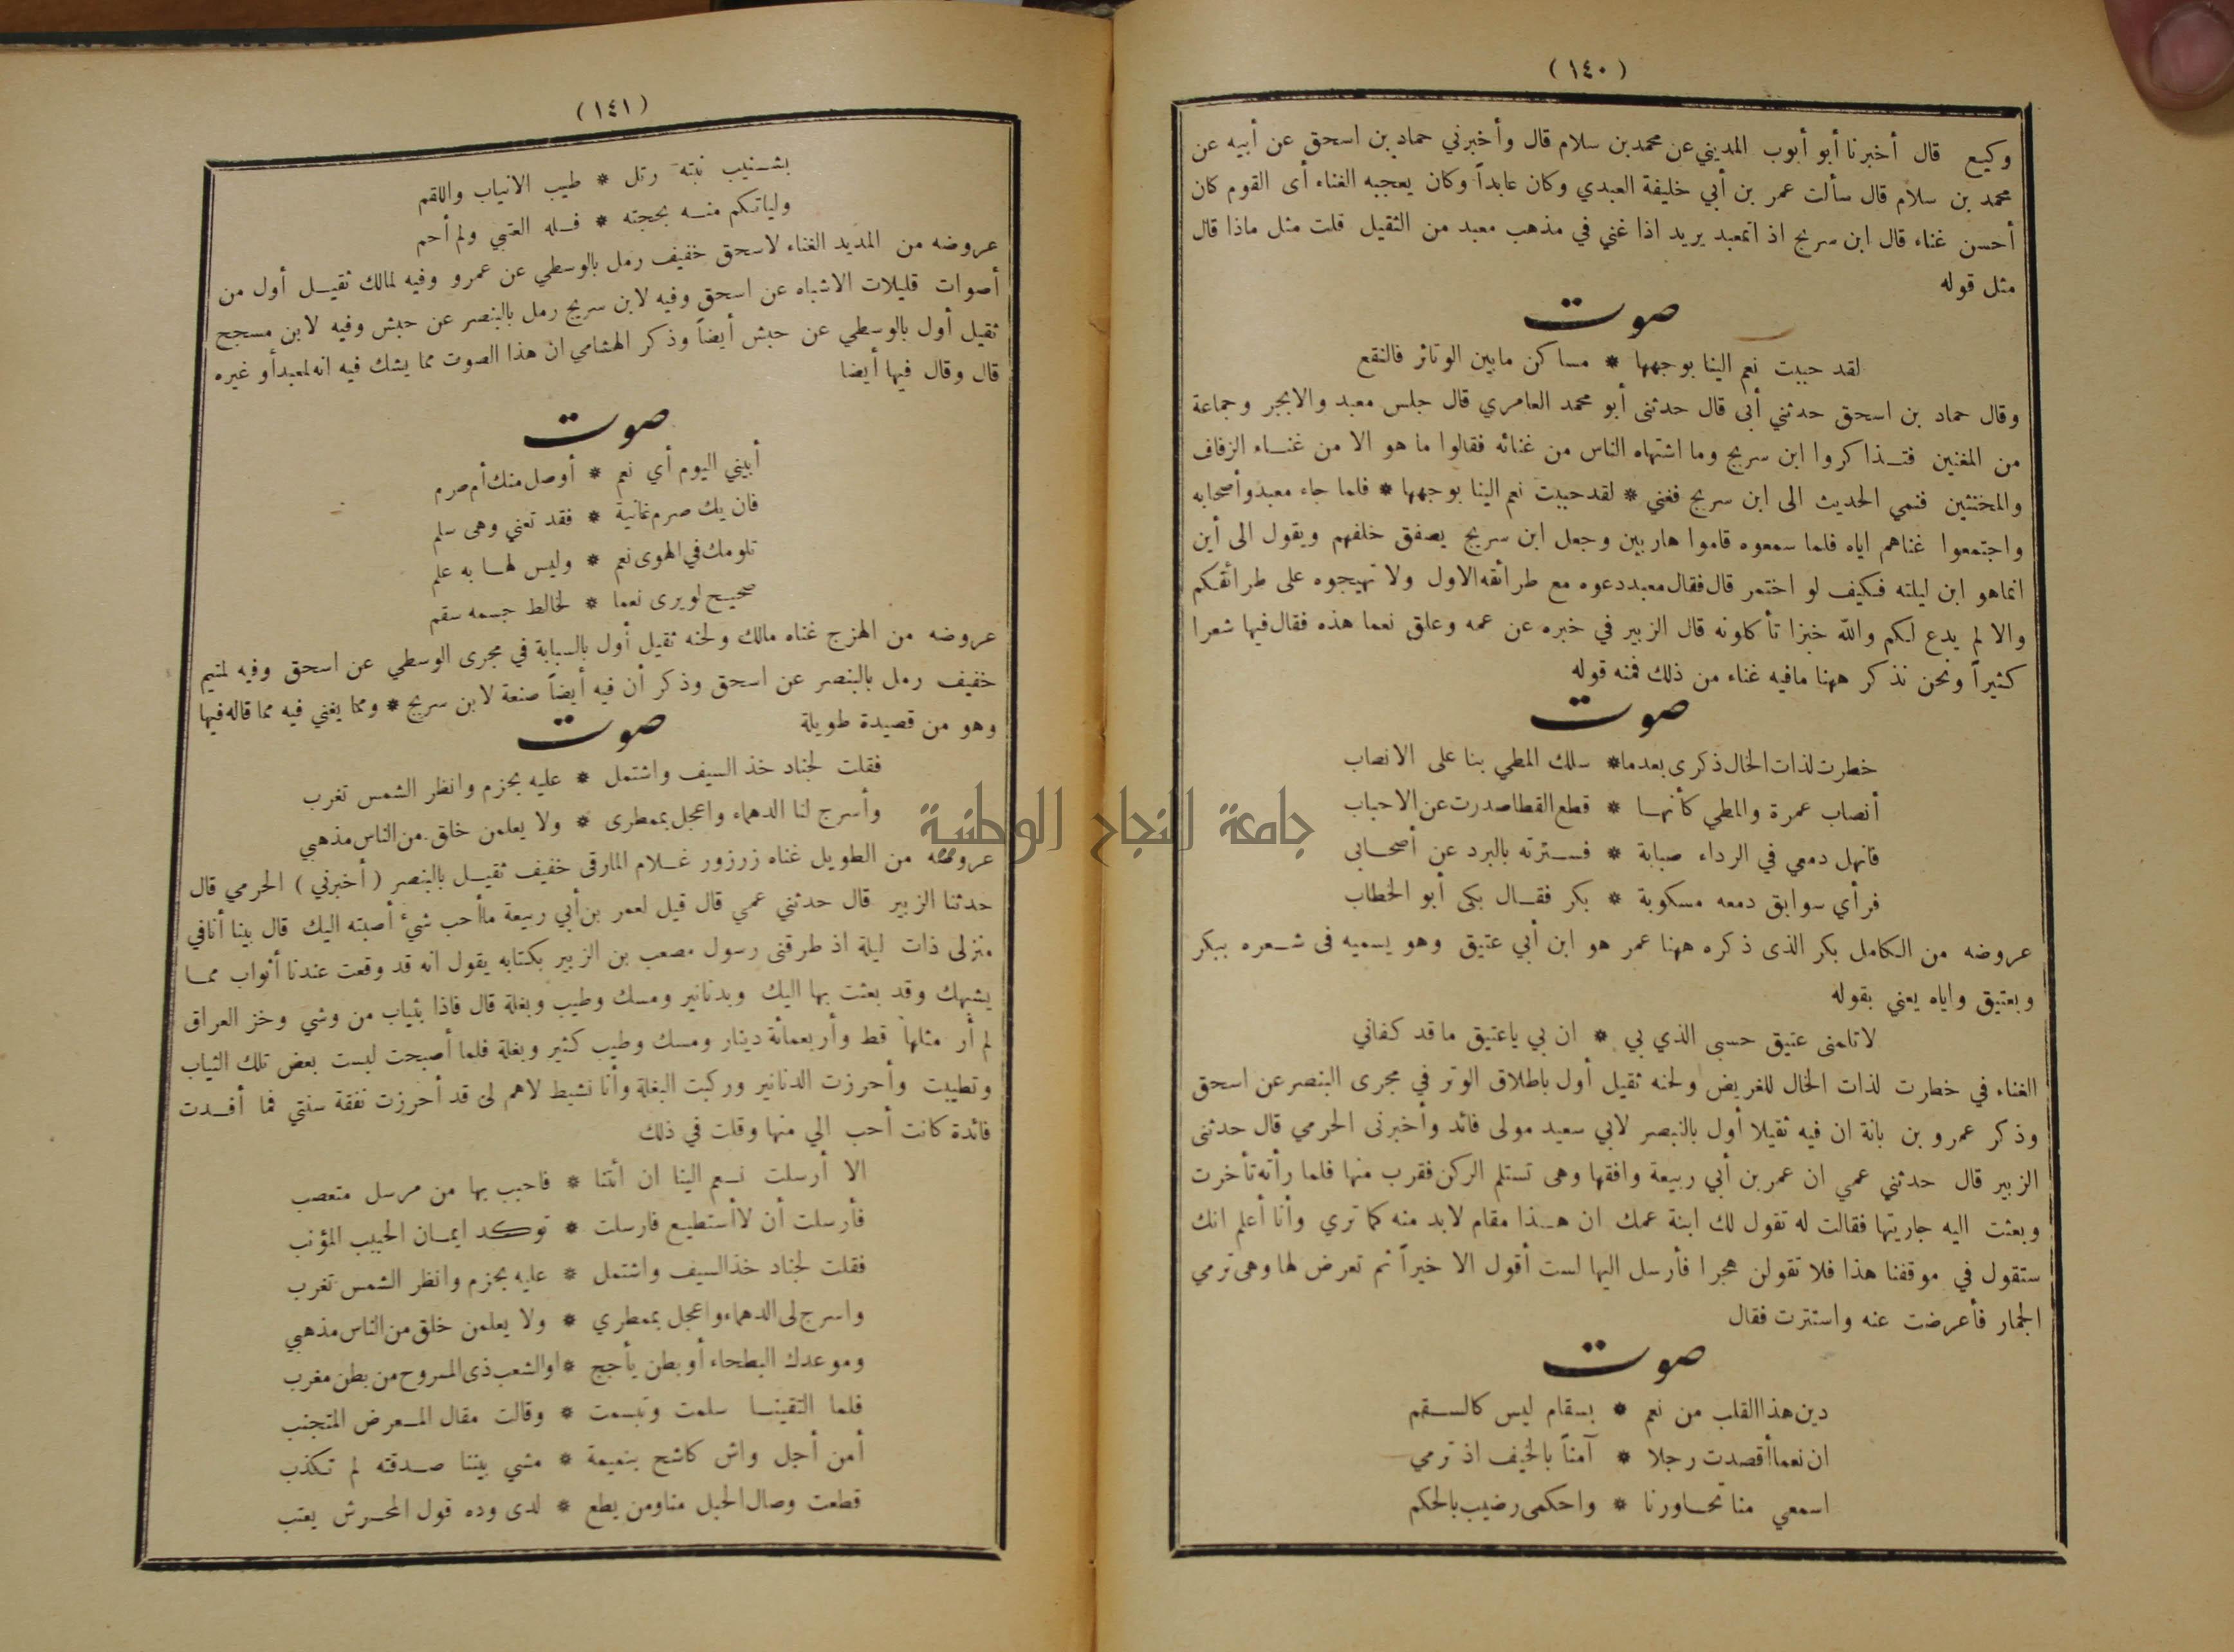 (١٤٠)
وكيع قال أخبرنا أبو أيوب المديني عن محمد بن سلام قال وأخبرني حماد بن اسحق عن أبيه عن
محمد بن سلام قال سألت عمر بن أبي خليفة العبدي وكان عابداً وكان يعجبه الغناء أى القوم كان
أحسن غناء قال ابن سريج اذ اتمعبد يريد اذا غني في مذهب معبد من الثقيل قلت مثل ماذا قال
مثل قوله
صوت
لقد حببت نعم الينا بوجهها * مساكن مابين الوتائر فالنقع
وقال حماد بن اسحق حدثني أبى قال حدثنى أبو محمد العامري قال جلس معبد والابجر وجماعة
من المغنين فتذاكروا ابن سريج وما اشتهاه الناس من غنائه فقالوا ما هو الا من غناء الزفاف
والمخنثين فنمي الحديث الى ابن سريج فغني * لقد حببت نعم الينا بوجهها * فلما جاء معبد وأصحابه
واجتمعوا غناهم اياه فلما سمعوه قاموا هاربين وجعل ابن سريج يصفق خلفهم ويقول الى أين
انماهو ابن ليلته فكيف لو اختمر قال فقال معبد دعوه مع طرائقه الاول ولا تهيجوه على طرائقكم
والا لم يدع لكم والله خبزا تأكلونه قال الزبير في خبره عن عمه وعلق نعما هذه فقال فيها شعرا
كثيراً ونحن نذكر ههنا مافيه غناء من ذلك فمنه قوله
صوت
خطرت لذات الخال ذكرى بعدما * سلك المطي بنا على الانصاب
أنصاب عمرة والمطي كأنها * قطع القطا صدرت عن الاحباب
فانهل دمعي في الرداء صبابة * فسترته بالبرد عن أصحابى
فرأي سوابق دمعه مسكوبة * بكر فقال بكى أبو الخطاب
عروضه من الكامل بكر الذى ذكره ههنا عمر هو ابن أبي عتيق وهو يسميه فى شعره ببكر
وبعتيق واياه يعني بقوله
لاتلمنى عتيق حسبى الذي بي * ان بي ياعتيق ماقد كفاني
الغناء في خطرت لذات الخال للغريض ولحنه ثقيل أول باطلاق الوتر في مجرى البنصر عن اسحق
وذكر عمرو بن بانة ان فيه ثقيلا أول بالبنصر لابي سعيد مولى فائد وأخبرنى الحرمي قال حدثنى
الزبير قال حدثني عمي ان عمر بن أبي ربيعة وافقها وهى تستلم الركن فقرب منها فلما رأته تأخرت
وبعثت اليه جاريتها فقالت له تقول لك ابنة عمك ان هذا مقام لابد منه كما تري وأنا أعلم انك
ستقول في موقفنا هذا فلا تقولن هجرا فأرسل اليها لست أقول الا خيراً ثم تعرض لها وهى ترمي
الجمار فأعرضت عنه واستترت فقال
صوت
دين هذا القلب من نعم * بسقام ليس كالسقم
ان نعما أقصدت رجلا * آمناً بالخيف اذ ترمي
اسمعي منا تحاورنا * واحكمى رضيب بالحكم
(١٤١)
بشنيب نبته رتل * طيب الانياب واللقم
ولياتكم منه بحجته * فله العتبي ولم أحم
عروضه من المديد الغناء لاسحق خفيف رمل بالوسطي عن عمرو وفيه لمالك ثقيل أول من
أصوات قليلات الاشباه عن اسحق وفيه لابن سريج رمل بالبنصر عن حبش وفيه لابن مسجح
ثقيل أول بالوسطي عن حبش أيضاً وذكر الهشامي ان هذا الصوت مما يشك فيه انه لمعبد أو غيره
قال وقال فيها أيضا
صوت
أبيني اليوم أي نعم * أوصل منك أم صرم
فان يك صرم غانية * فقد تغني وهى سلم
تلومك في الهوى نعم * وليس لها به علم
صحيح لو يرى نعما * لخالط جسمه سقم
عروضه من الهزج غناه مالك ولحنه ثقيل أول بالسبابة في مجرى الوسطي عن اسحق وفيه لمتيم
خفيف رمل بالبنصر عن اسحق وذكر أن فيه أيضاً صنعة لابن سريج * ومما يغني فيه مما قاله فيها
وهو من قصيدة طويلة
صوت
فقلت لجناد خذ السيف واشتمل * عليه بحزم وانظر الشمس تغرب
وأسرج لنا الدهماء واعجل بممطرى * ولا يعلمن خلق من الناس مذهبي
عروضه من الطويل غناه زرزور غلام المارقى خفيف ثقيل بالبنصر (أخبرني) الحرمي قال
حدثنا الزبير قال حدثني عمي قال قيل لعمر بن أبي ربيعة ماأحب شيء أصبته اليك قال بينا أنا في
منزلى ذات ليلة اذ طرقنى رسول مصعب بن الزبير بكتابه يقول انه قد وقعت عندنا أثواب مما
يشبهك وقد بعثت بها اليك وبدنانير ومسك وطيب وبغلة قال فاذا بثياب من وشي وخز العراق
لم أر مثلها قط وأربعمائة دينار ومسك وطيب كثير وبغلة فلما أصبحت لبست بعض تلك الثياب
وتطيبت وأحرزت الدنانير وركبت البغلة وأنا نشيط لاهم لى قد أحرزت نفقة سنتي فما أفدت
فائدة كانت أحب الي منها وقلت في ذلك
الا أرسلت نعم الينا ان ائتنا * فاحبب بها من مرسل متعصب
فأرسلت أن لاأستطيع فارسلت * توكد ايمان الحبيب المؤنب
فقلت لجناد خذ السيف واشتمل * عليه بحزم وانظر الشمس تغرب
واسرج لى الدهماء واعجل بممطري * ولا يعلمن خلق من الناس مذهبي
وموعدك البطحاء أو بطن يأجج * او الشعب ذى المسروح من بطن مغرب
فلما التقينا سلمت وتبسمت * وقالت مقال المعرض المتجنب
أمن أجل واش كاشح بنميمة * مشي بيننا صدقته لم تكذب
قطعت وصال الحبل منا ومن يطع * لدى وده قول المحرش يعتب
جامعة النجاح الوطنية